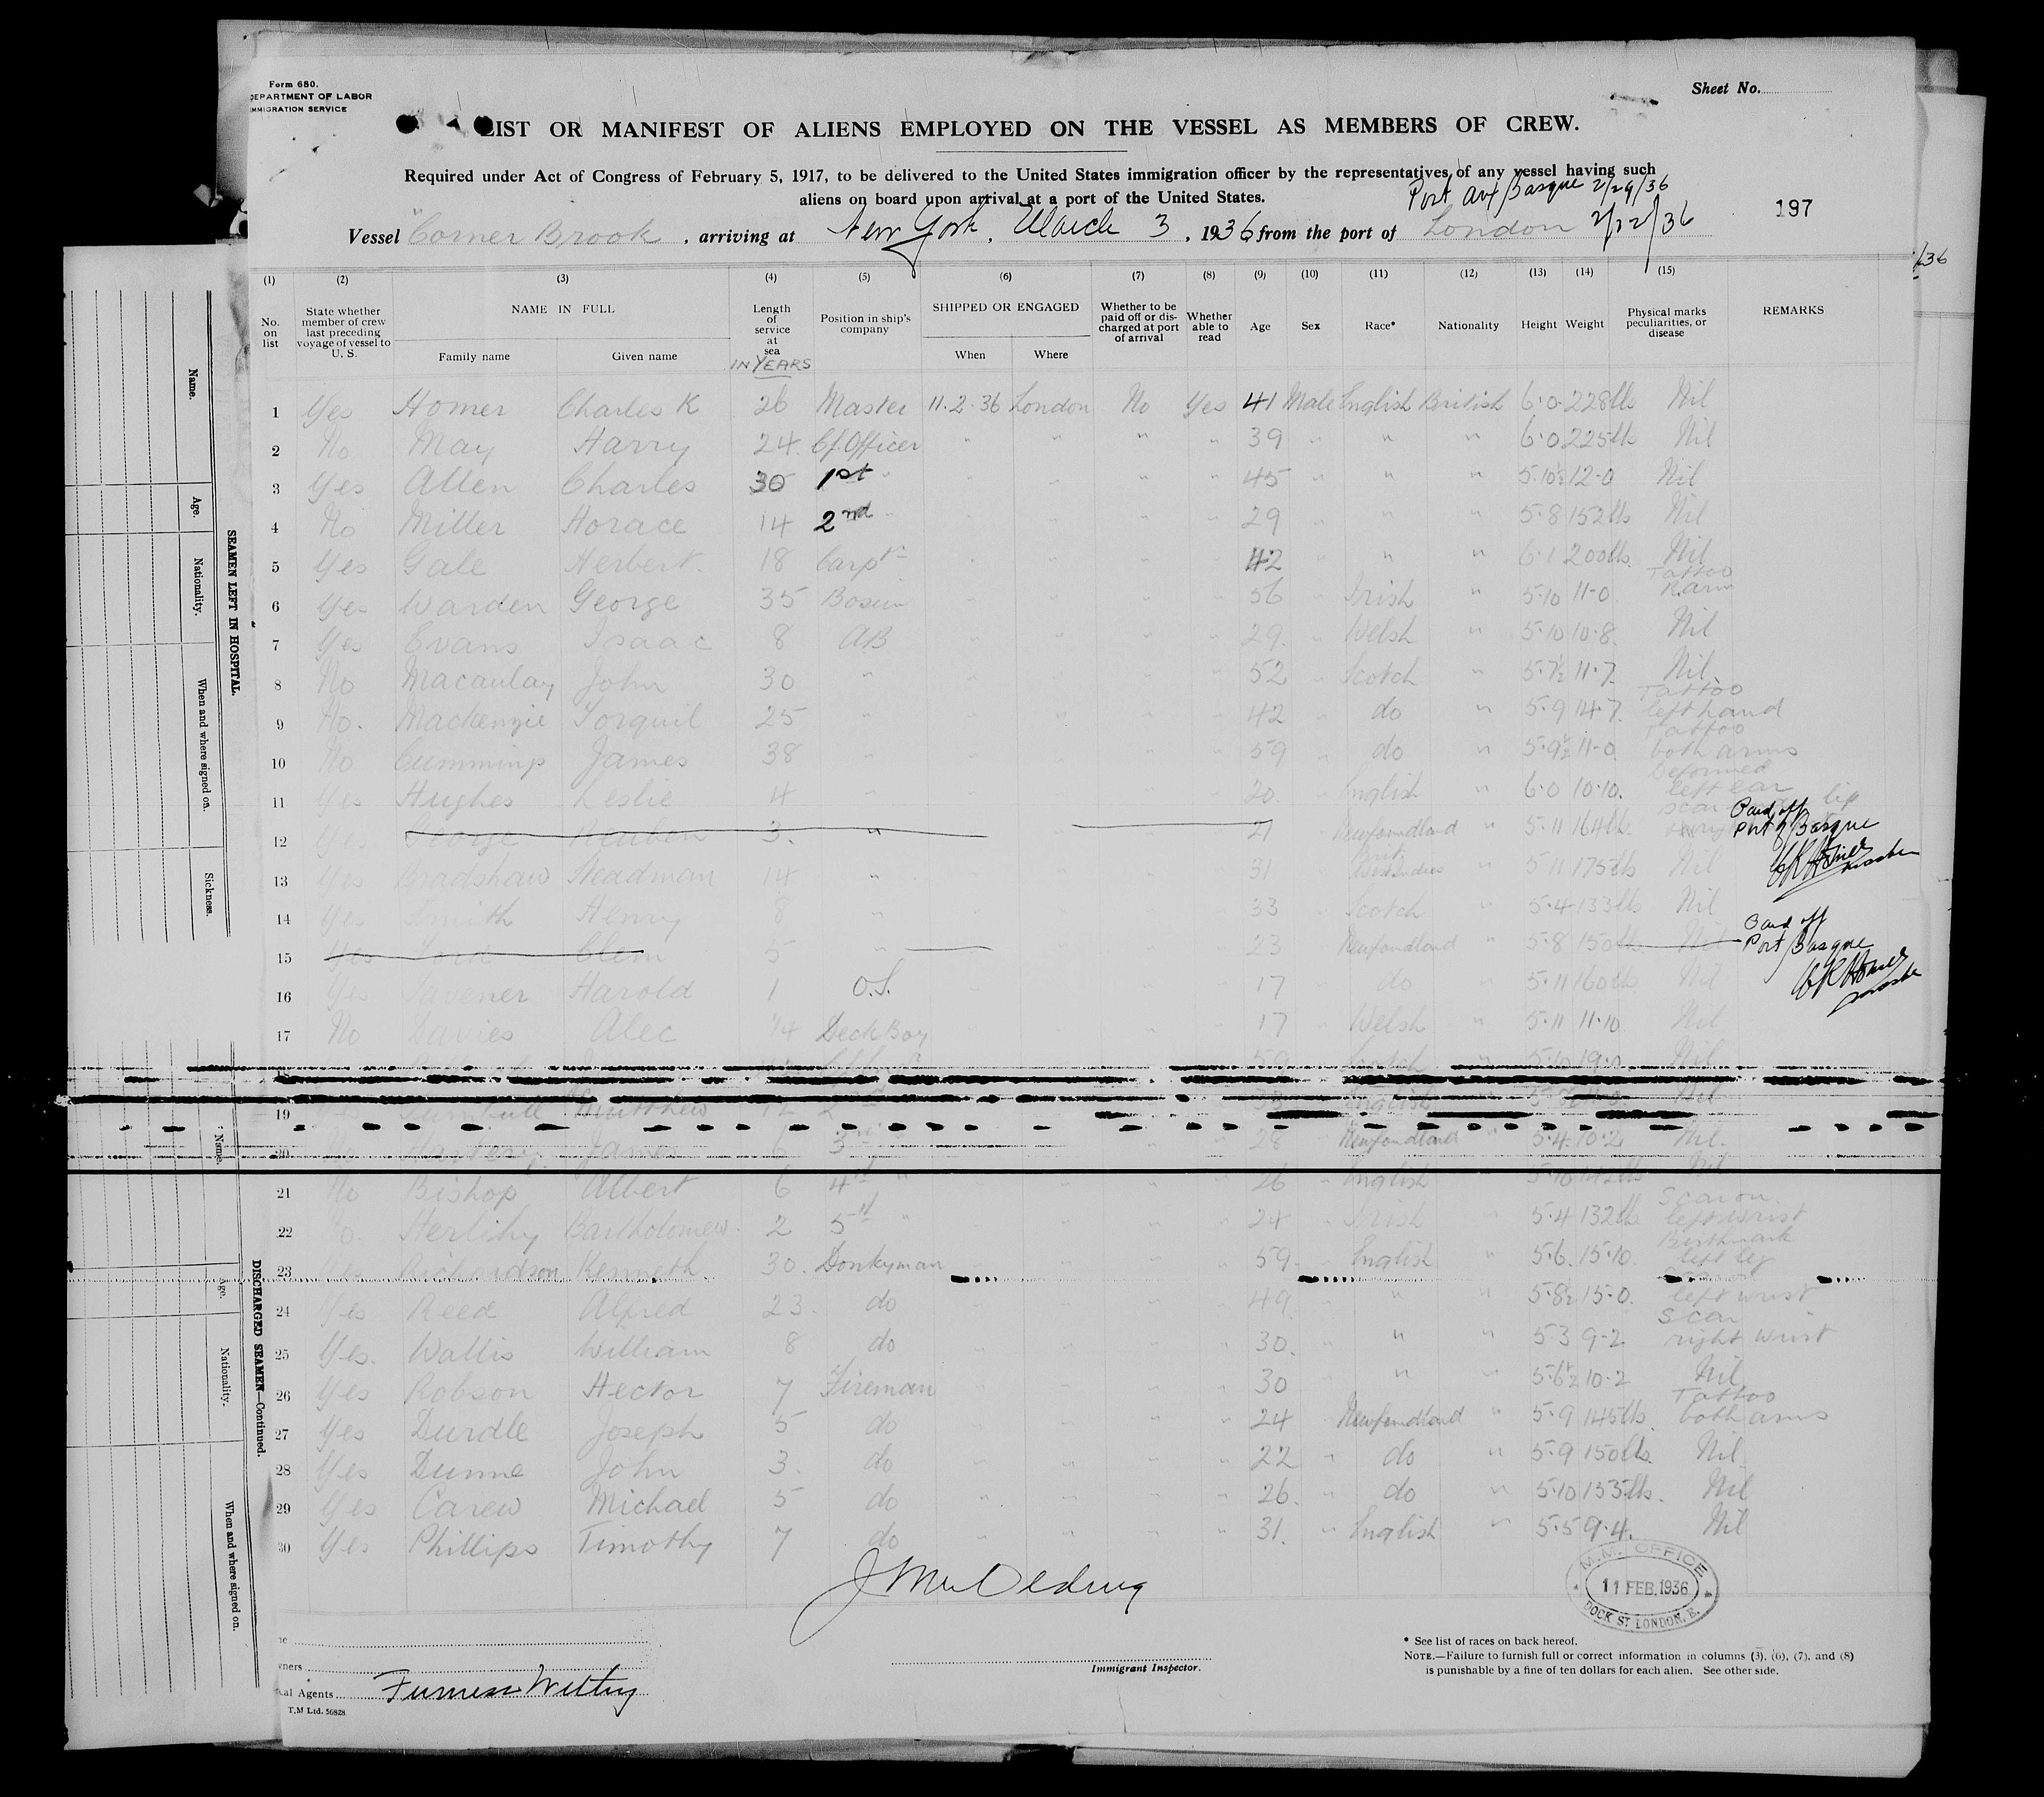 Form 680.
DEPARTMENT OF LABOR
IMMIGRATION SERVICE
Sheet No.
LIST OR MANIFEST OF ALIENS EMPLOYED ON THE VESSEL AS MEMBERS OF CREW.
Required under Act of Congress of February 5, 1917, to be delivered to the United States immigration officer by the representatives of any vessel having such
aliens on board upon arrival at a port of the United States.
Port aux Basque 2/29/36
197
Vessel "Corner Brook, arriving at New York, March 3, 1936 from the port of London 2/12/36
/36
(1) (2) (3) (4) (5) (6) (7) (8) (9) (10) (11) (12) (13) (14) (15)
No. on list
State whether member of crew last preceding voyage of vessel to U. S.
NAME IN FULL
Family name Given name
Length of service at sea
IN YEARS
Position in ship's company
SHIPPED OR ENGAGED
When Where
Whether to be paid off or discharged at port of arrival
Whether able to read
Age Sex Race* Nationality Height Weight
Physical marks peculiarities, or disease
REMARKS
1 Yes Homer Charles K 26 Master 11.2.36 London No Yes 41 Male English British 6.0 228lb Nil
2 No May Harry 24. Cf. Officer " " " " 39 " " " 6.0 225lb Nil
3 Yes Allen Charles 30 1st " " " " " 45 " " " 5.10½ 12-0 Nil
4 No Miller Horace 14 2nd " " " " " 29 " " " 5.8 152lb Nil
5 Yes Gale Herbert. 18 Carptr " " " " 42 " " " 6.1 200lb. Nil
6 Yes Warden George 35 Bosun " " " " 56 " Irish " 5.10 11-0 Tattoo R. arm
7 Yes Evans Isaac 8 AB " " " " 29. " Welsh " 5.10 10.8. Nil
8 No Macaulay John 30 " " " " " 52 " Scotch " 5.7½ 11.7. Nil.
9 No. Mackenzie Torquil 25 " " " " " 42 " do " 5.9 14.7. Tattoo left hand
10 No Cummings James 38 " " " " " 59 " do " 5.9½ 11-0. Tattoo both arms
11 Yes Hughes Leslie 4 " " " " " 20. " English " 6.0 10.10. Deformed left ear
12 Yes George Reuben 3. " 21 " Newfoundland " 5.11 164lb. scar lip Paid off Port Basque
CK Homer master
13 Yes Bradshaw Steadman 14 " " " " " 31 " Brit West Indies " 5.11 175lb Nil
14 Yes Smith Henry 8 " " " " " 33 " Scotch " 5.4 133lb Nil
15 Yes Clem 5 " " " " " 23 " Newfoundland " 5.8 150lb. Nil Paid off Port Basque
CK Homer master
16 Yes Tavener Harold 1 O.S. " " " " 17 " do " 5.11 160lb Nil
17 No Davies Alec 1/4 Deck Boy " " " " 17 " Welsh " 5.11 11.10. Nil
18 59 Scotch " 5.10 19.0 Nil
19 Turnbull Matthew 12 2nd English Nil
20 James 6 3rd 28 " Newfoundland " 5.4 10.2 Nil.
21 No Bishop Albert 6 4th " " " " " 26 " English " 5.10 142lb Nil
22 No. Herlihy Bartholomew. 2 5th " " " " " 24 " Irish " 5.4 132lb. Scar on left wrist
23 Yes Richardson Kenneth 30. Donkyman " " " " 59. " English " 5.6. 15.10 Birthmark left leg
24 Yes Reed Alfred 23. do " " " " 49. " " " 5.8½ 15.0. left wrist
25 Yes. Wallis William 8 do " " " " 30. " " " 5.3 9-2. Scar right wrist
26 Yes Robson Hector 7 Fireman " " " " 30 " " " 5.6½ 10-2 Nil
27 Yes Durdle Joseph 5 do " " " " 24 " Newfoundland " 5.9 145lb. Tattoo both arms
28 Yes Dunne John 3. do " " " " 22 " do " 5.9 150lb. Nil.
29 Yes Carew Michael 5 do " " " " 26. " do " 5.10 135lb. Nil
30 Yes Phillips Timothy 7 do " " " " 31. " English " 5.5 9.4. Nil
M.M. OFFICE
11 FEB. 1936
DOCK ST LONDON, E.
Immigrant Inspector.
* See list of races on back hereof.
NOTE.—Failure to furnish full or correct information in columns (3), (6), (7), and (8)
is punishable by a fine of ten dollars for each alien. See other side.
ne
wners
cal Agents Furness Withy
T.M Ltd. 56828
Name.
Age.
Nationality.
When and where signed on.
Sickness.
SEAMEN LEFT IN HOSPITAL.
Name.
Age.
Nationality.
When and where signed on.
DISCHARGED SEAMEN—Continued.